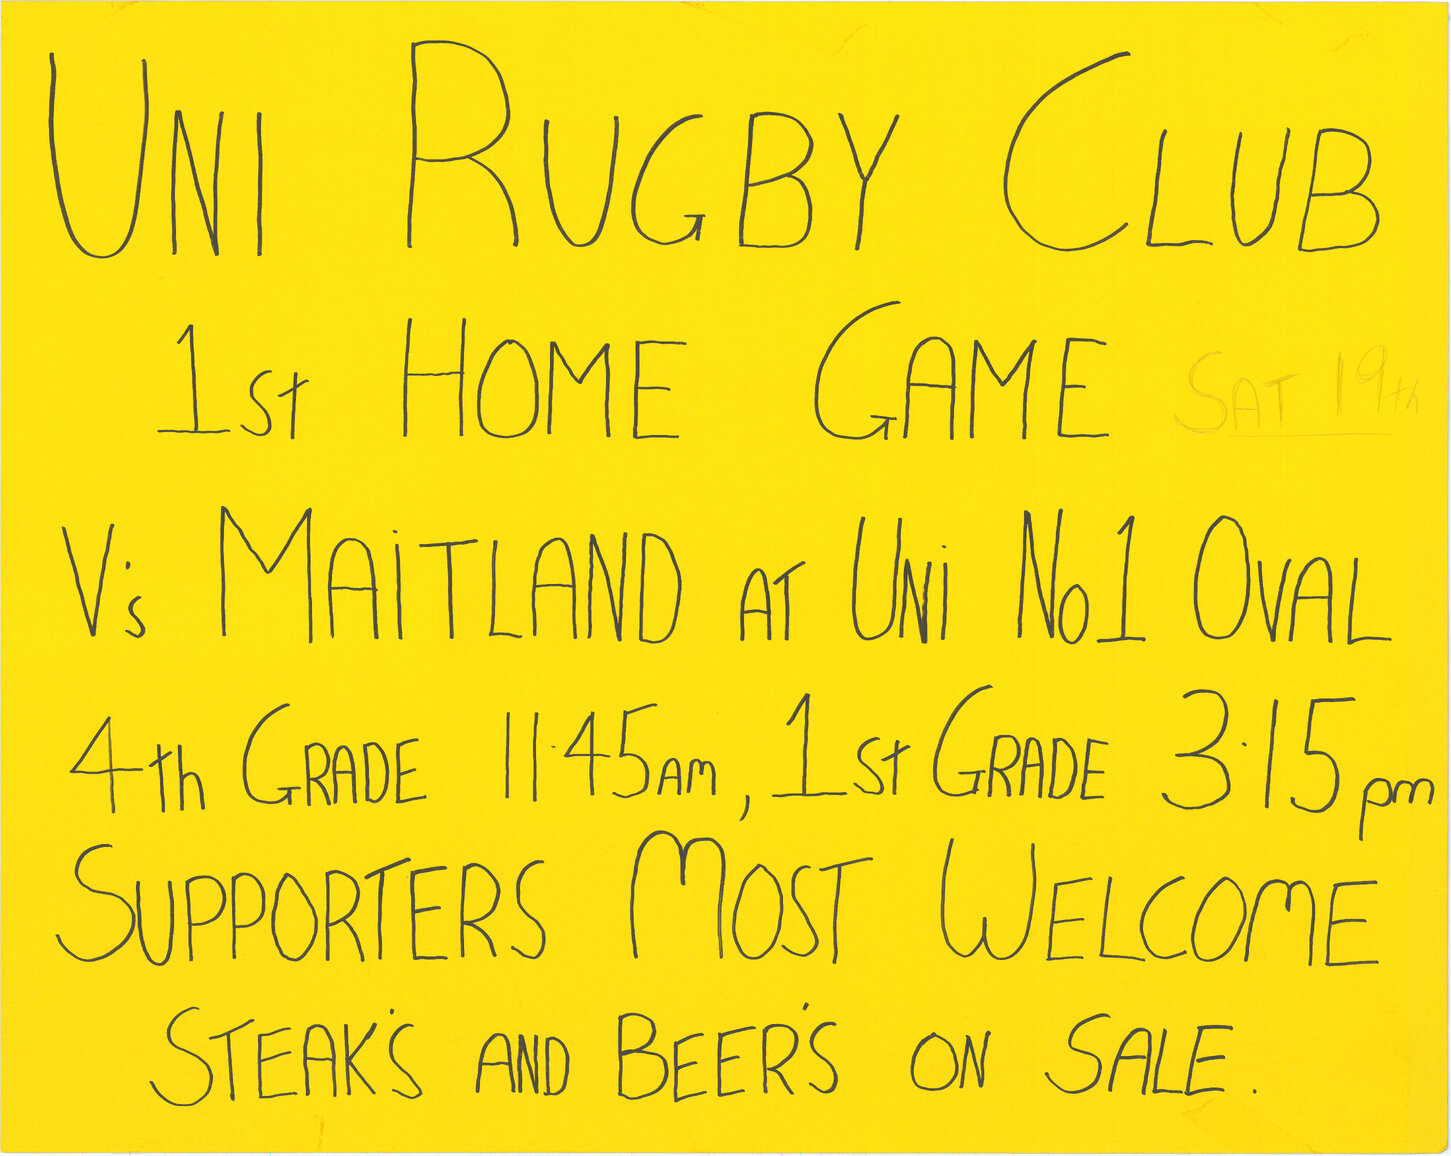 UNI RUGBY CLUB
1st HOME GAME SAT 19th
V's MAiTLAND AT UNi No1 OVAL
4th GRADE 11.45AM, 1st GRADE 3.15pm
SUPPORTERS MOST WELCOME
STEAK'S AND BEER'S ON SALE.